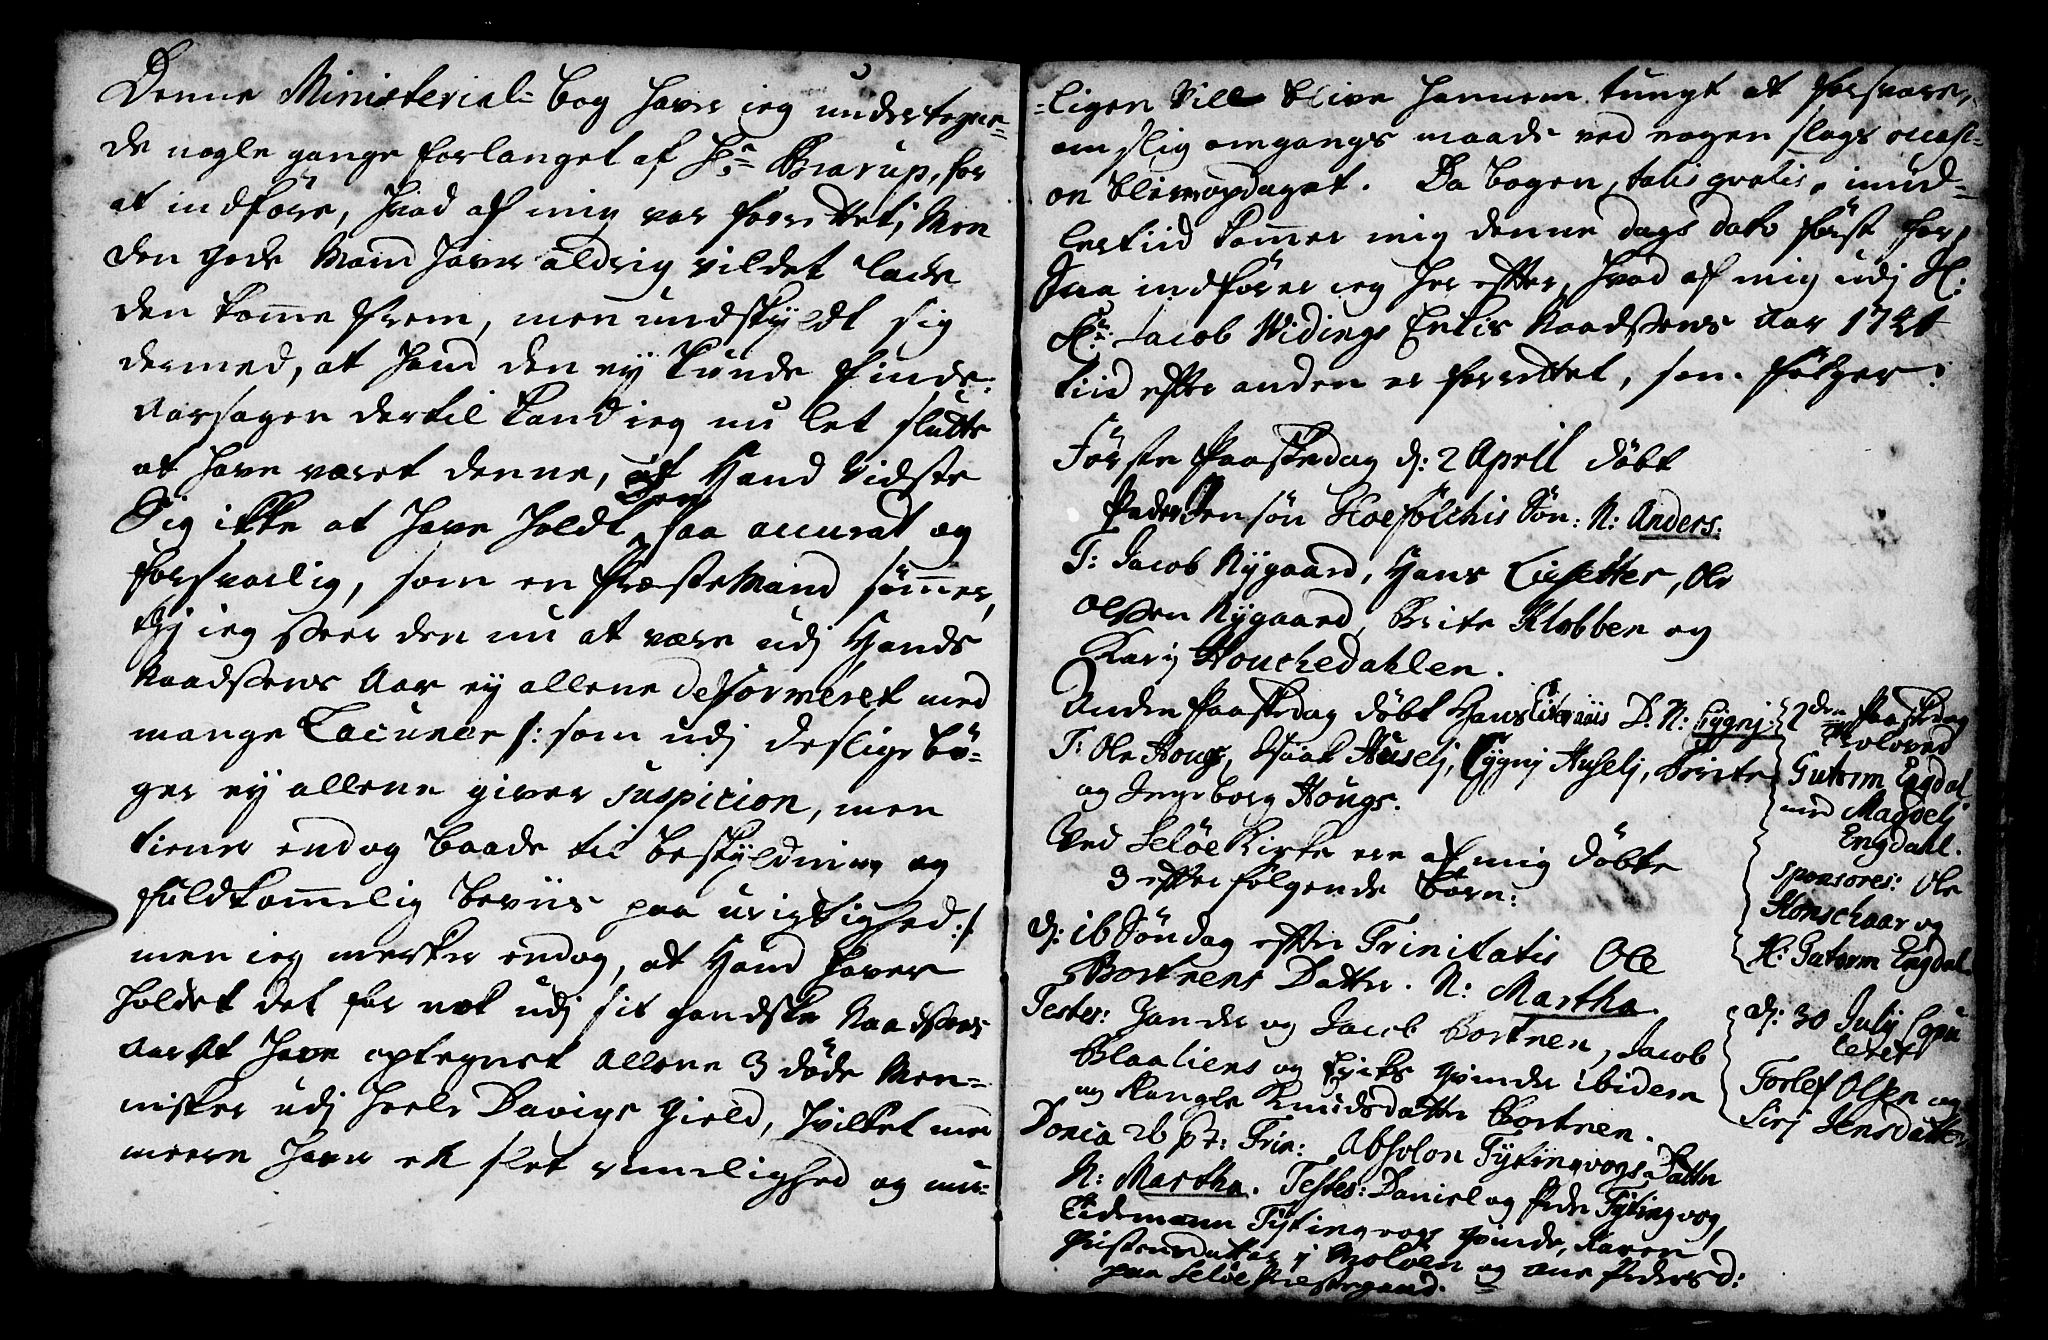 Denne Ministerial- bog haver jeg undertegne-
de nogle gange forlanget af Hr. Brarup, for
at indføre, hvad af mig var forrettet; Men
den gode Mand haver aldrig vildet lade
den komme frem, men undskyldt sig
dermed, at hand den ey kunde finde:
Aarsagen dertil kand jeg nu let slutte
at have været denne, at Hand vidste
Sig ikke at have holdt den saa accurat og
forsvarlig, som en Præste Mand sømmer,
thj jeg seer den nu at være udj Hands
Naadsens Aar ey allene deformeret med
mange Lacuner /: som udj deslige bø-
ger ey allene giver suspicion, men
tiener endog baade til beskyldning og
fuldkommelig beviis paa urigtighed :/
men jeg merker endog, at Hand haver
holdet det for nok udj sit gandske Naadsens
Aar at have optegnet allene 3 døde Men-
nisker udj heele Davigs gield, hvilket med
meere haver et slet rimelighed og
-ligen vill blive hannem tungt at forsvare,
om slig omgangs maade ved nogen slags occasi-
on bliver opdaget. Da bogen, talis qvalis, imid-
lertiid kommer mig denne dags dato først for,
Saa indfører jeg her efter, hvad af mig udj Sl:
Hr. Jacob Widings Enkis Naadsens Aar 1741
tiid efter anden er forrettet, som følger:
Første Paaskedag d: 2 Aprill døbt
Peder Jensøn Søn: N: Anders:
T: Jacob Nygaard, Hans Ole
Olssen Nygaard, Brite Klobben og
Karj Houchedahlen.
Anden Paaskedag døbt Hans D. N: Sygnj:
T: Ole Hougs, Isaac Huselj, Sygnj Huselj, Brite
og Ingeborg Hougs.
Ved Seløe Kirke ere af mig døbte
3 efterfølgende børn:
d: 16 Søndag efter Trinitatis Ole
Bortnens Datter. N: Martha.
Testes: Jacob Bortnen, Jacob
Blaaliens og qvinder ibidem
og Rangle Knudsdatter Bortnen.
Domca 26 p: Trin: Absolon Tytingvogs Datter
N: Martha. Testes: Daniel og Peder Tytingvog,
Tytingvogs qvinde, Karen
j Moløen og Ane Pedersd:
paa Seløe Prestegaard.
2den Paaskedag
troloved
Gutorm Engdal
med Magdelj
Engdahl.
sponsores: Ole
Honschaar og
H: Gutorm Engdal
d: 30 July Copu
leret
Torlef Olsen og
Sirj Jensdatter